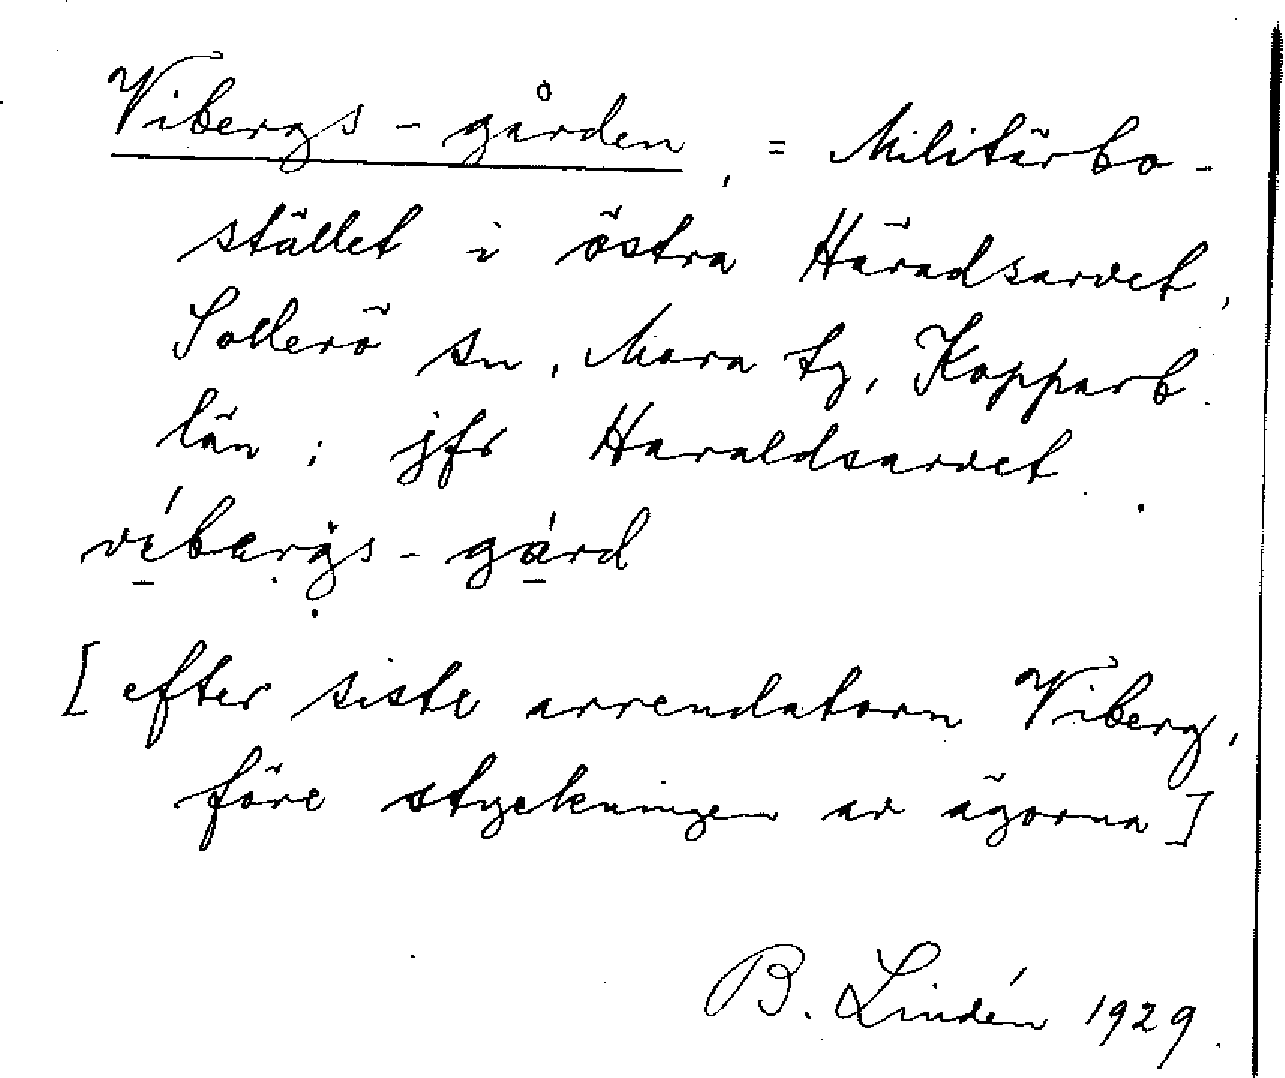 Vibergs-gården, = Militärbo-
stället i östra Häradsarvet,
Sollerö sn, Mora tg, Kopparb.
län; jfr Haraldsarvet.
víbærgs-gård
[efter siste arrendatorn Viberg,
före styckningen av ägorna]
B. Lindén 1929.